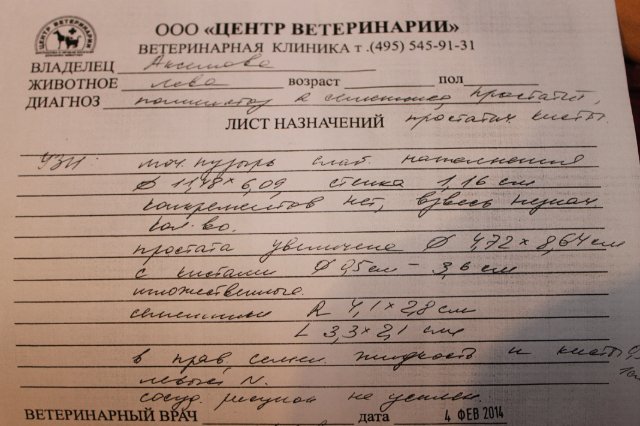 ООО «ЦЕНТР ВЕТЕРИНАРИИ»
ВЕТЕРИНАРНАЯ КЛИНИКА т .(495) 545-91-31
ВЛАДЕЛЕЦ
ЖИВОТНОЕ Лева возраст пол
ДИАГНОЗ простатит,
ЛИСТ НАЗНАЧЕНИЙ простатич. кисты.
УЗИ: моч. пузырь слаб. наполнения
Ø 11,48 × 6,09 стенка 1,16 см
конкрементов нет, взвесь незнач.
кол-во.
простата увеличена Ø 4,72 × 8,64 см
с кистами Ø 0,5 см – 3,6 см
множественные.
семенники R 4,1 × 2,8 см
L 3,3 × 2,1 см
в прав. семен. жидкость и кисты
левый N.
сосуд. рисунок не усилен.
ВЕТЕРИНАРНЫЙ ВРАЧ дата 4 ФЕВ 2014